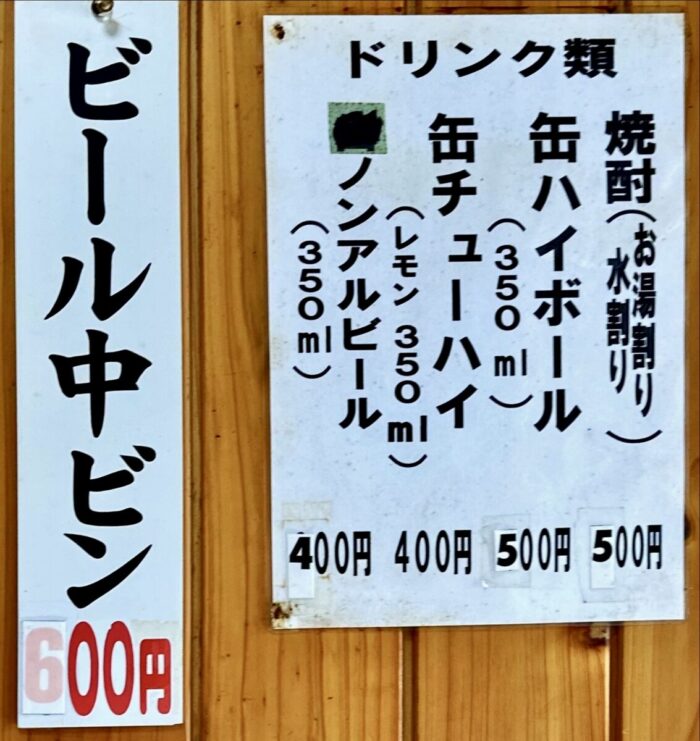 ビール中ビン
600円
ドリンク類
焼酎(お湯割り
水割り)
500円
缶ハイボール
(350ml)
500円
缶チューハイ
(レモン 350ml)
400円
ノンアルビール
(350ml)
400円